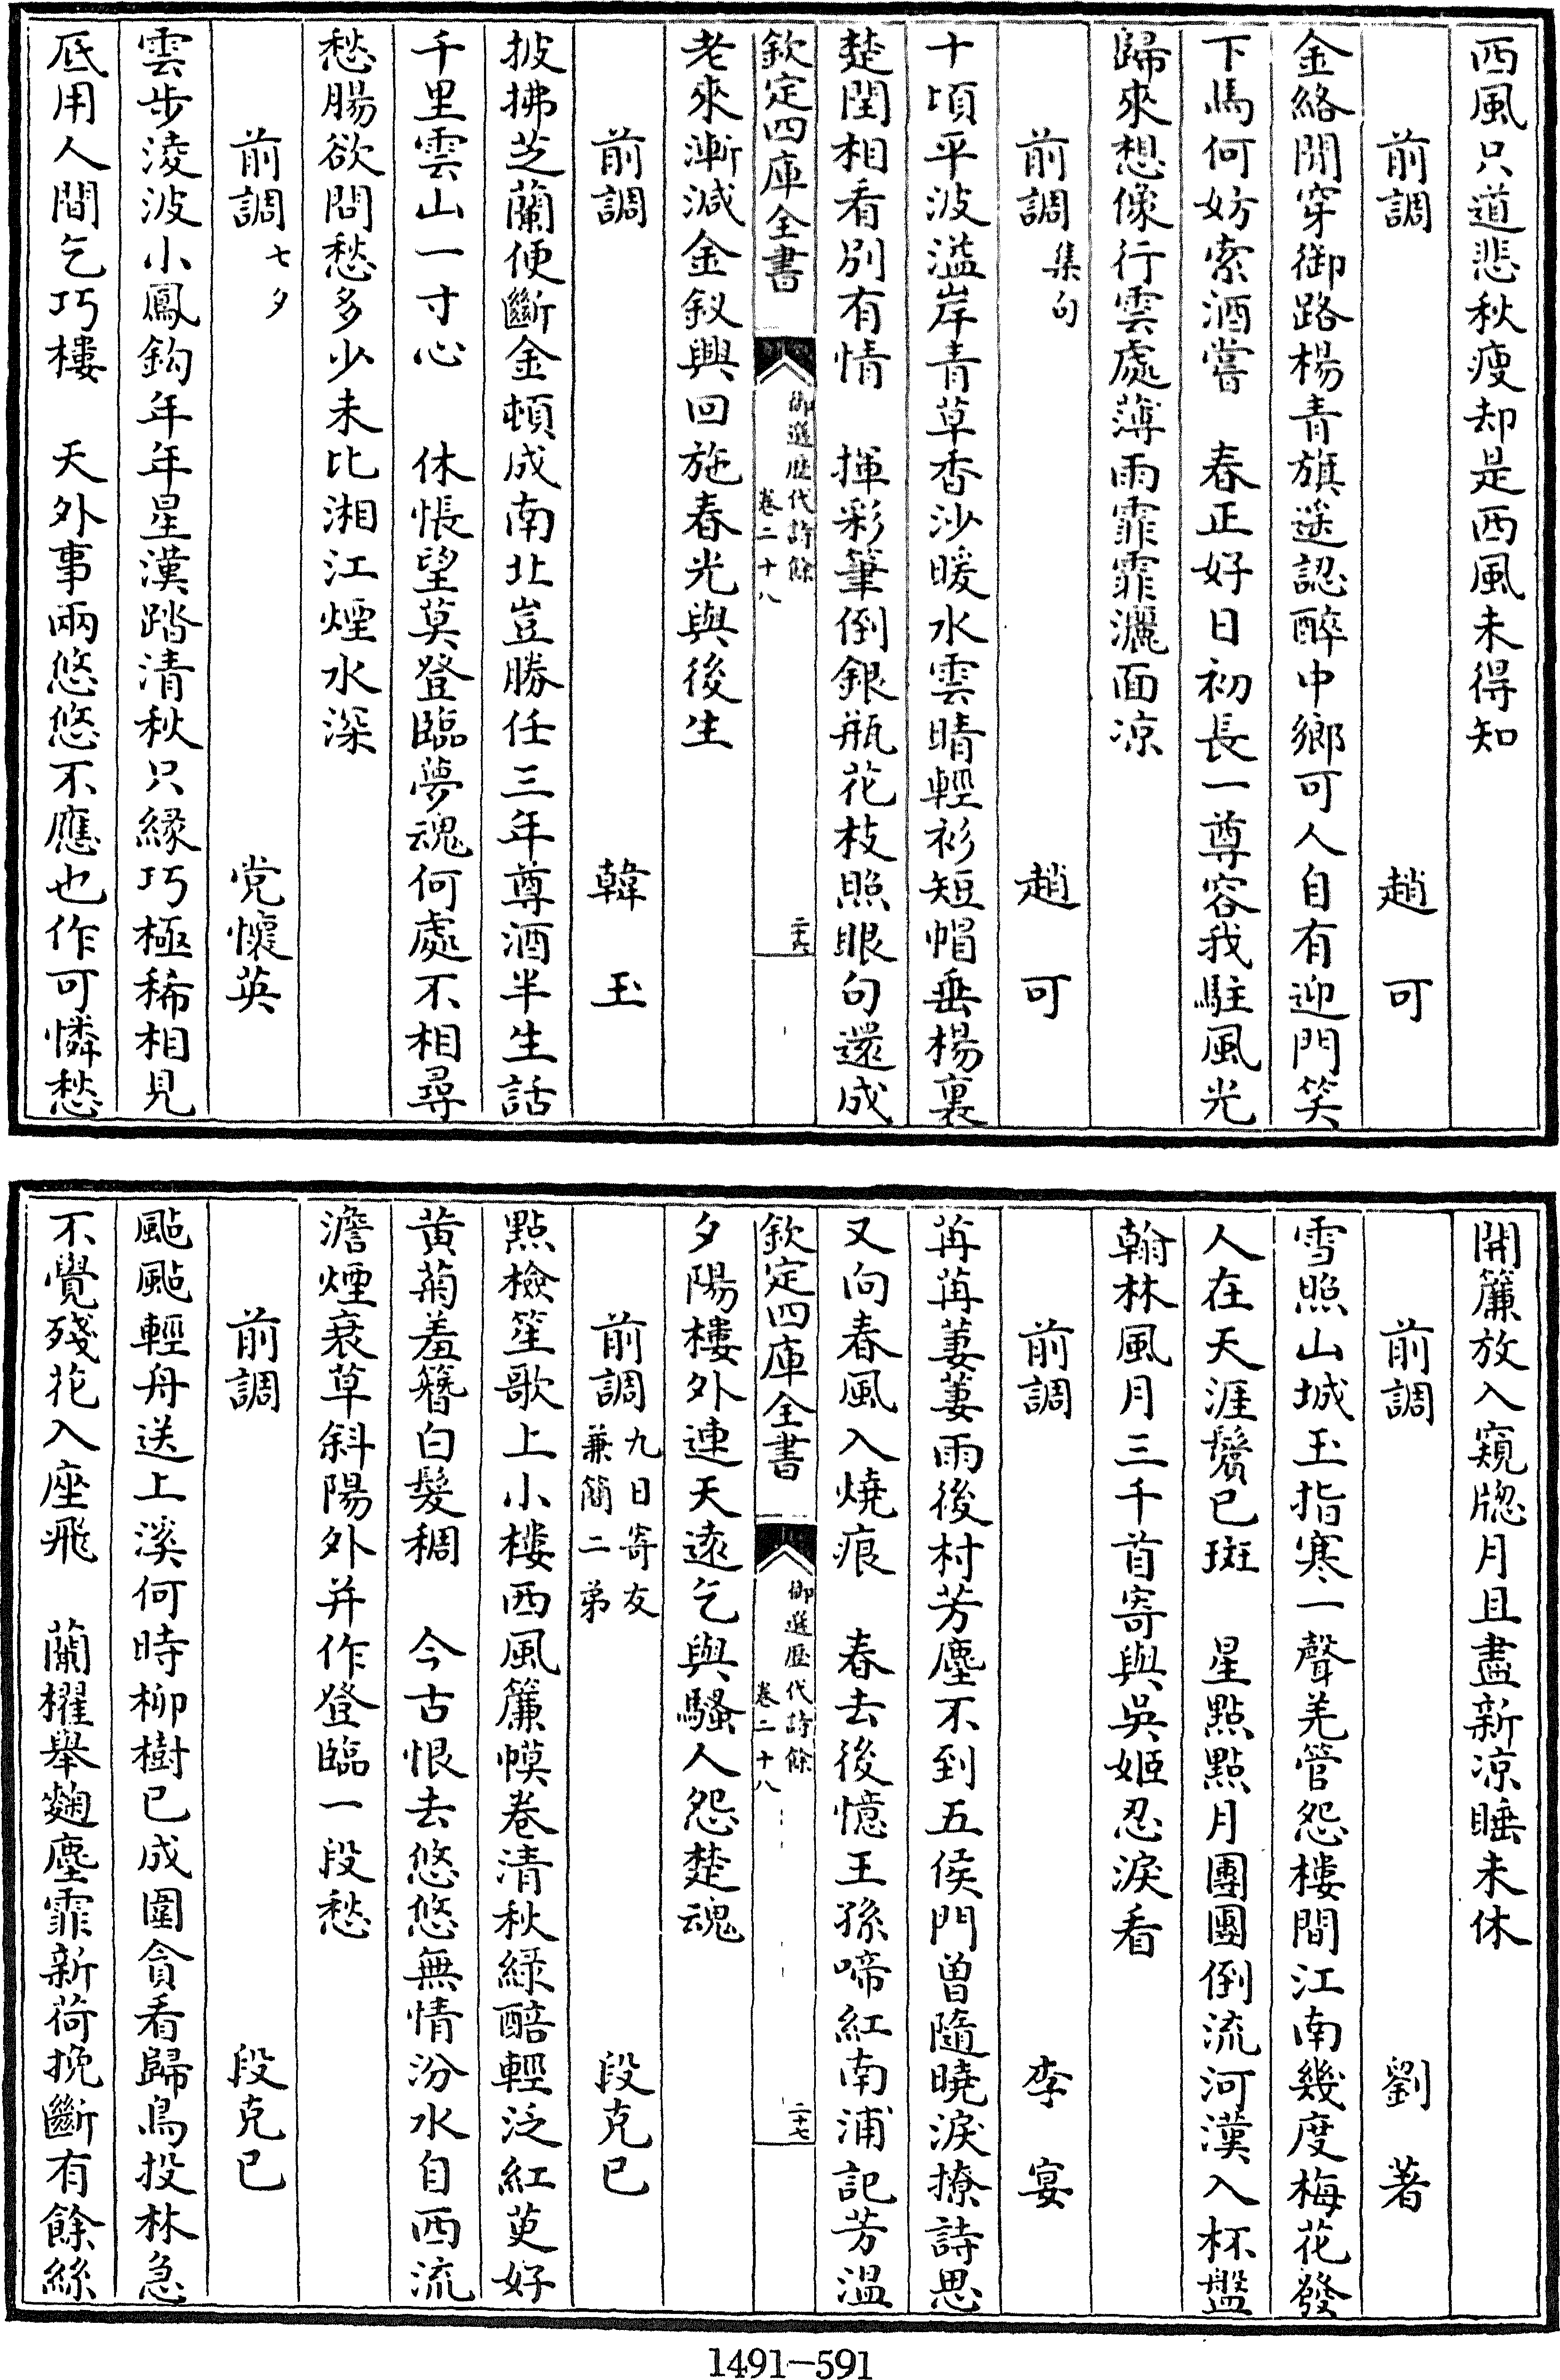 西風只道悲秋瘦却是西風未得知
前調　趙可
金絡閒穿御路楊青旗遥認醉中鄉可人自有迎門笑
下馬何妨索酒嘗　春正好日初長一尊容我駐風光
歸來想像行雲處薄雨霏霏灑面凉
前調集句　趙可
十頃平波溢岸青草香沙暖水雲晴輕衫短帽垂楊裏
楚閏相看别有情　揮彩筆倒銀瓶花枝照眼句還成
欽定四庫全書　御選歴代詩餘卷二十八　二十六
老來漸減金釵興回施春光與後生
前調　韓玉
披拂芝蘭便斷金頓成南北豈勝任三年尊酒半生話
千里雲山一寸心　休悵望莫登臨夢魂何處不相尋
愁腸欲問愁多少未比湘江煙水深
前調七夕　党懷英
雲步淩波小鳳鈎年年星漢踏清秋只縁巧極稀相見
底用人間乞巧樓　天外事兩悠悠不應也作可憐愁
開簾放入窺牕月且盡新凉睡未休
前調　劉著
雪照山城玉指寒一聲羌管怨樓間江南幾度梅花發
人在天涯鬢已斑　星點點月團團倒流河漢入杯盤
翰林風月三千首寄與吳姬忍淚看
前調　李宴
苒苒萋萋雨後村芳塵不到五侯門曽隨曉淚撩詩思
又向春風入燒痕　春去後憶王孫啼紅南浦記芳温
欽定四庫全書　御選歴代詩餘卷二十八　二十七
夕陽樓外連天遠乞與騷人怨楚魂
前調九日寄友兼簡二弟　段克已
點檢笙歌上小樓西風簾幙卷清秋緑醅輕泛紅萸好
黄菊羞簪白髮稠　今古恨去悠悠無情汾水自西流
澹煙衰草斜陽外并作登臨一段愁
前調　段克已
颭颭輕舟送上溪何時柳樹已成圍貪看歸鳥投林急
不覺殘花入座飛　蘭櫂舉麴塵霏新荷挽斷有餘絲
1491—591